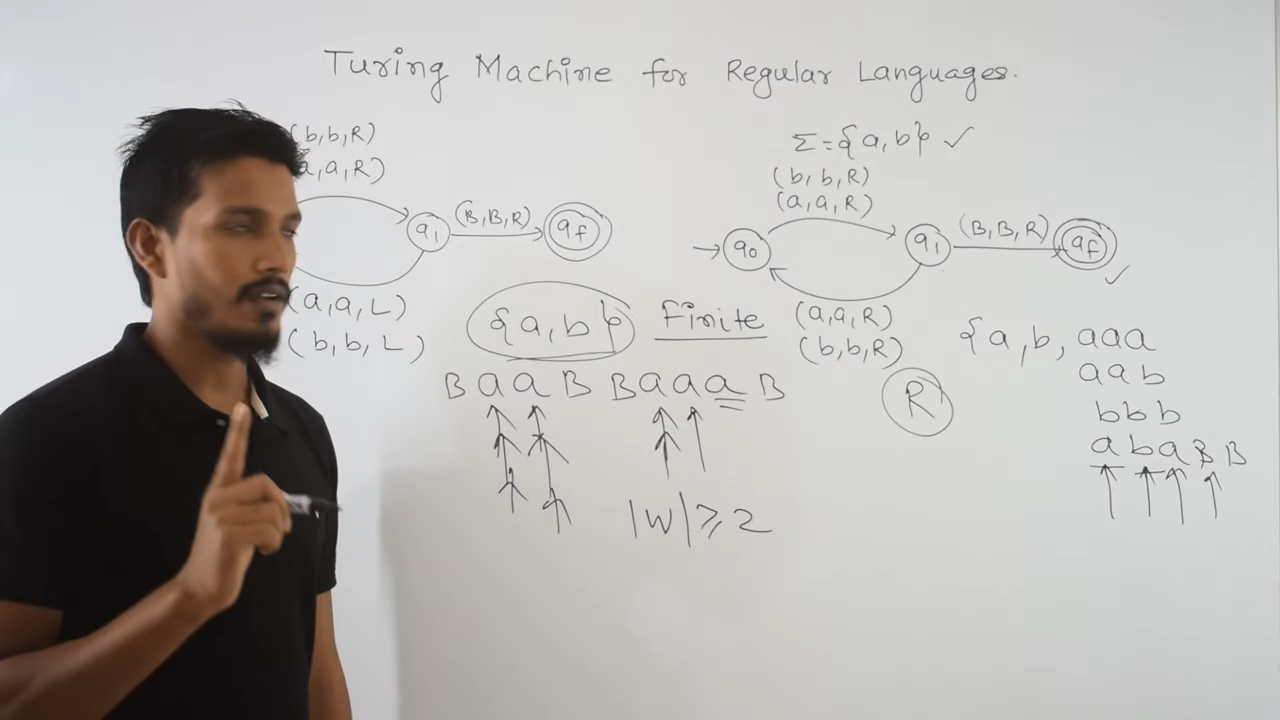 Turing Machine for Regular Languages.
(b,b,R)
a,a,R)
q1 (B,B,R) qf
(a,a,L)
(b,b,L)
{a,b} Finite
B a a B B a a a B
|W| ≥ 2
Σ = {a,b} ✓
(b,b,R)
(a,a,R)
→ q0 q1 (B,B,R) qf ✓
(a,a,R)
(b,b,R)
R
{a,b, aaa
aab
bbb
a b a B B